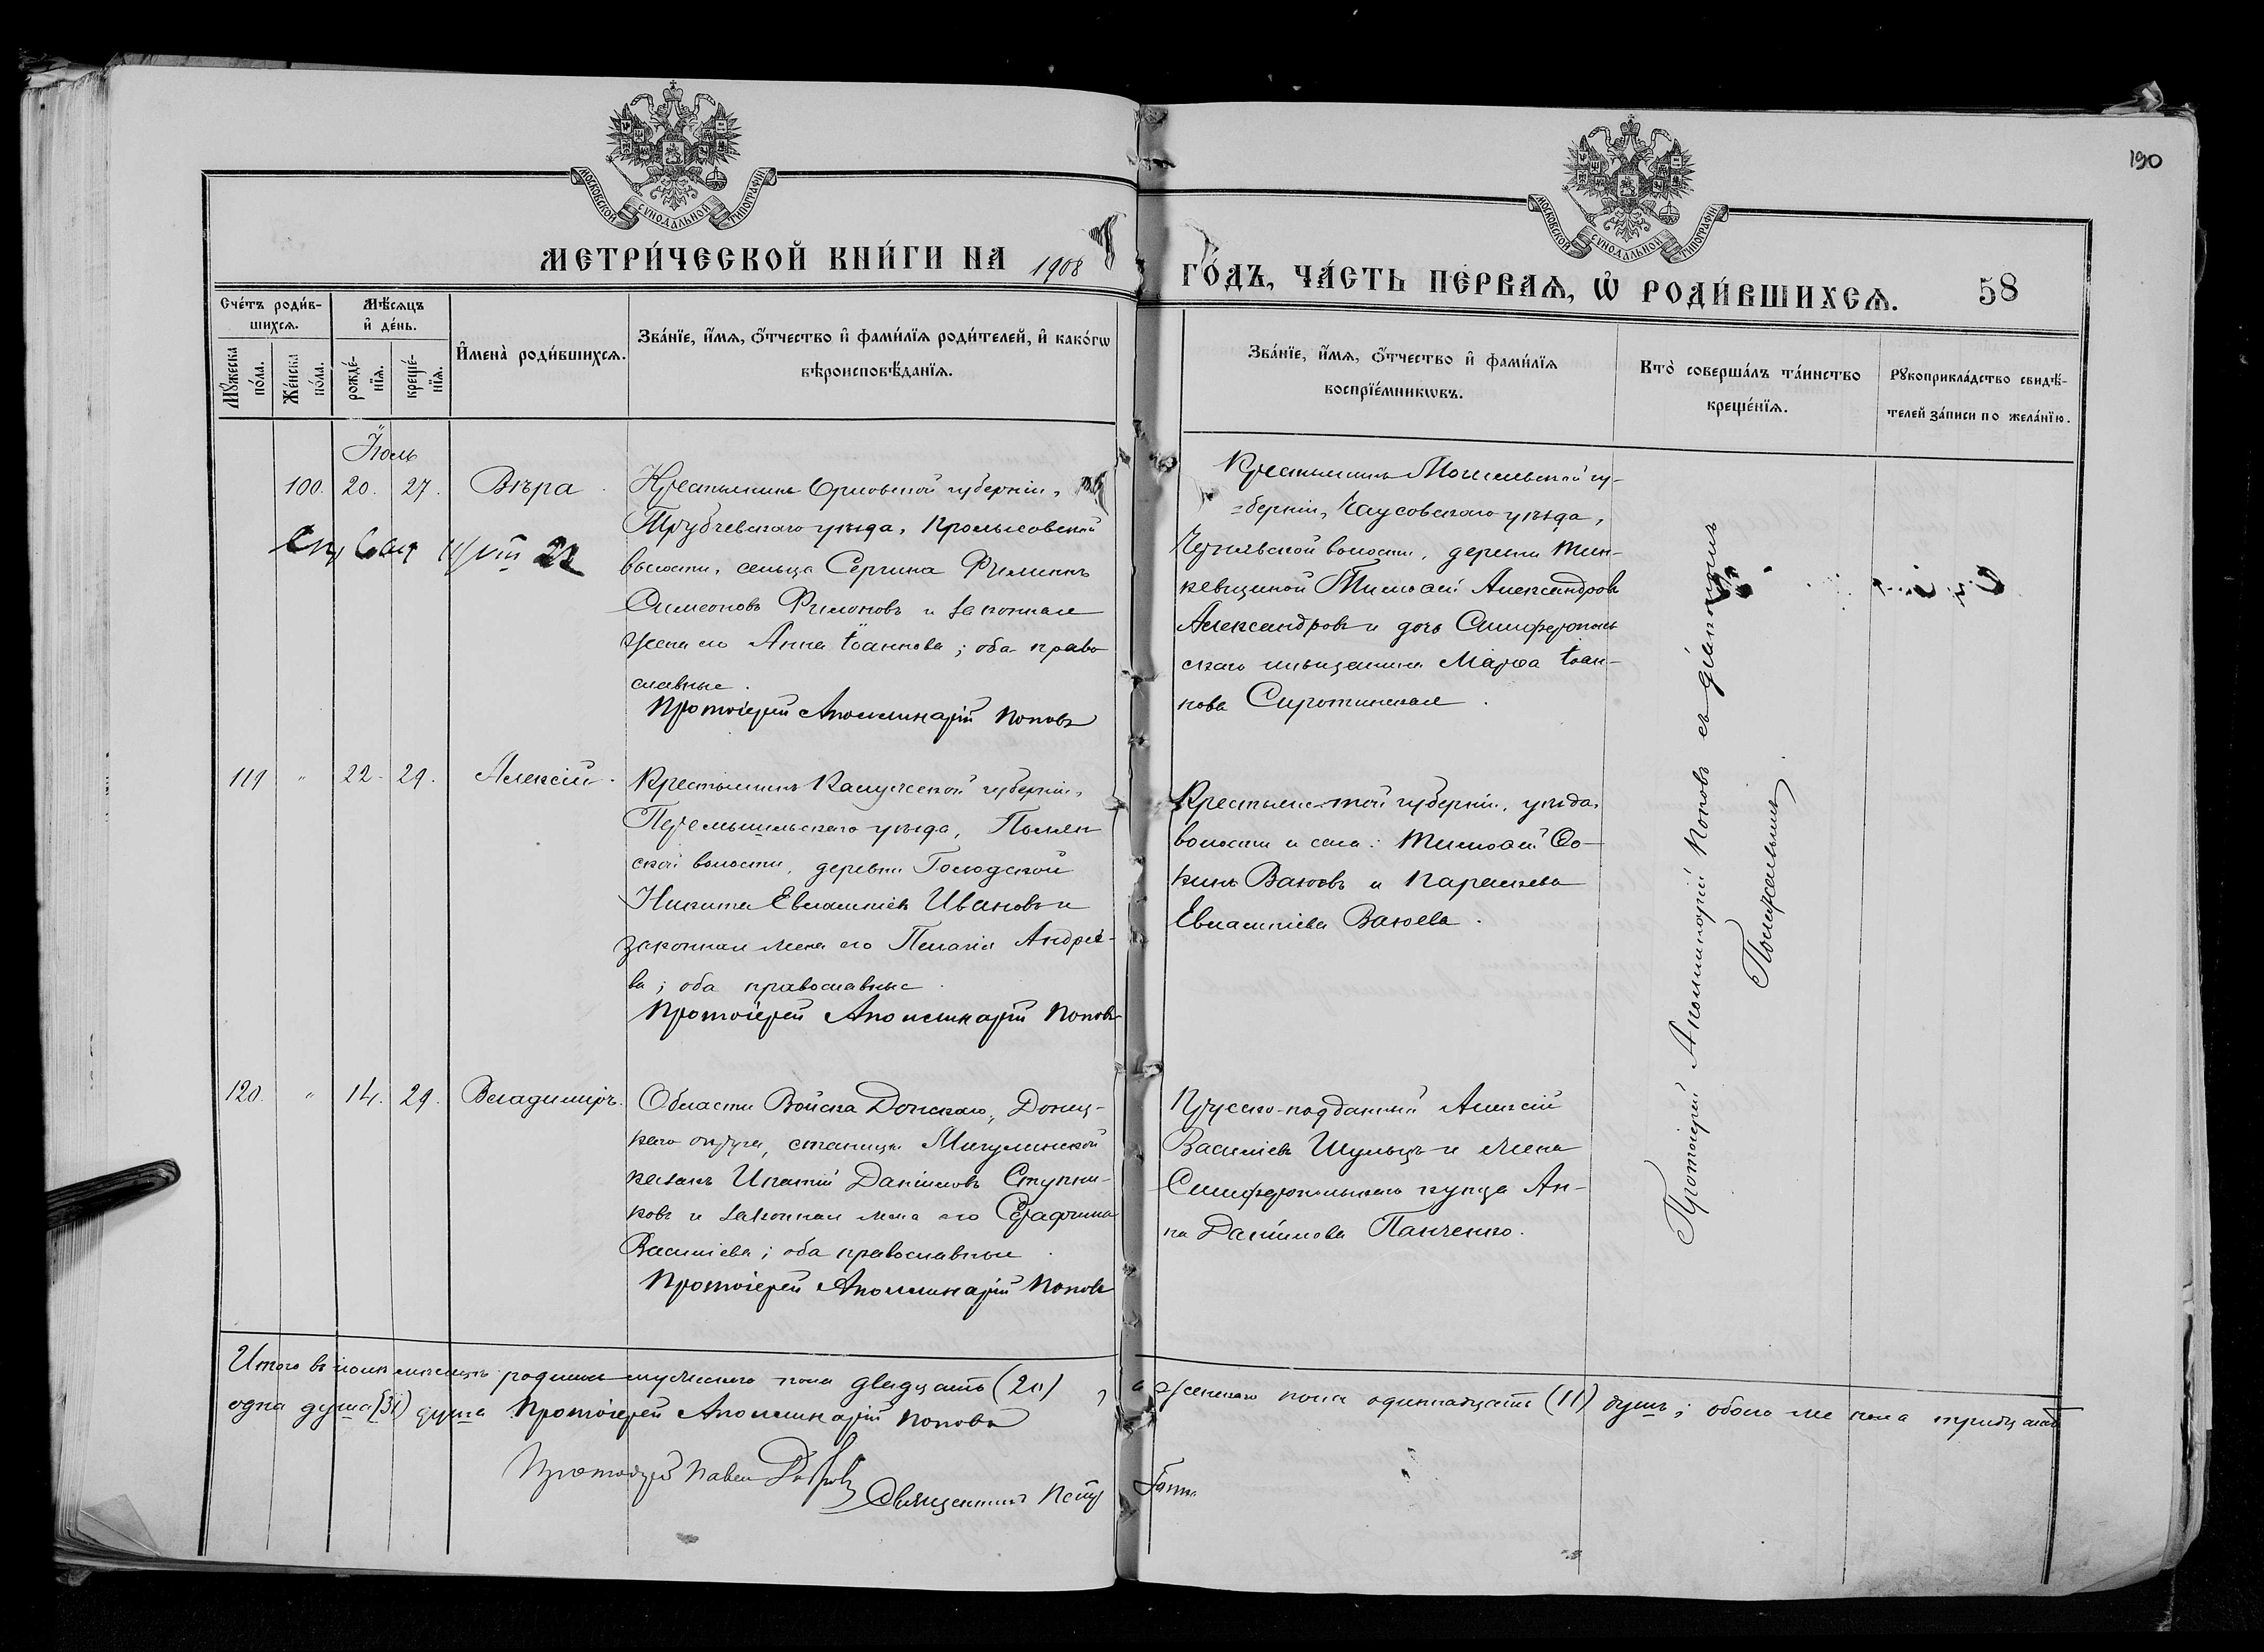 190
МОСКОВСКОЙ СѴНОДАЛЬНОЙ ТИПОГРАФІИ
МОСКОВСКОЙ СѴНОДАЛЬНОЙ ТИПОГРАФІИ
МЕТРИ́ЧЕСКОЙ КНИ́ГИ НА 1908
ГО́ДЪ, ЧА́СТЬ ПЕ́РВАѦ, Ѽ РОДИ́ВШИХСѦ.
58
Сче́тъ роди́в-
шихсѧ.
Мѣ́сѧцъ
и҆ де́нь.
Мꙋ́жеска
по́ла.
Же́нска
по́ла.
рожде́-
нїѧ.
креще́-
нїѧ.
И҆мена̀ роди́вшихсѧ.
Зва́нїе, и҆́мѧ, ѻ҆́тчество и҆ фами́лїѧ роди́телей, и҆ како́гѡ
вѣроисповѣ́данїѧ.
Зва́нїе, и҆́мѧ, ѻ҆́тчество и҆ фами́лїѧ
воспрїе́мникѡвъ.
Кто̀ соверша́лъ та́инство
креще́нїѧ.
Рꙋкоприкла́дство свидѣ́-
телей за́писи по жела́нїю.
Іюль
100. 20. 27. Вѣра
Крестьянинъ Орловской губерніи,
Трубчевскаго уѣзда,
волости, сельца Сергина Филиппъ
Симеоновъ Филоновъ и законная
жена его Анна Іоаннова; оба право
славные.
Протоіерей Аполлинарій Поповъ
Крестьянинъ Могилевской гу-
=берніи, Чаусовскаго уѣзда,
волости, деревни
Тимоѳей Александровъ
Александровъ и дочь Симферополь
скаго мѣщанина Марѳа Іоан-
нова Сиротинская.
119 " 22. 29. Алексій.
Крестьянинъ Калужской губерніи,
Перемышльскаго уѣзда, Полян
ской волости, деревни Голодской
Никита Евлампіевъ Ивановъ и
законная жена его Пелагія Андрее-
ва; оба православные.
Протоіерей Аполлинарій Поповъ
Крестьяне той губерніи, уѣзда,
волости и села: Тимоѳей Ѳо-
кинъ и Параскева
Евлампіева
120. " 14. 29. Владиміръ.
Области Войска Донскаго, Донец-
каго округа, станицы Мигулинской
казакъ Ипатій Даніиловъ Ступни-
ковъ и законная жена его Серафима
Василіева; оба православные.
Протоіерей Аполлинарій Поповъ
Прусско-подданный Алексій
Василіевъ Шульцъ и жена
Симферопольскаго купца Ан-
на Даніилова Панченко.
Протоіерей Аполлинарій Поповъ съ діакономъ
Итого въ іюлѣ мѣсяцѣ родилось мужескаго пола двадцать (20), а женскаго пола одиннадцать (11) душъ; обоего же пола тридцать
одна душа (31) душа Протоіерей Аполлинарій Поповъ
Протоіерей Павелъ
Священникъ Петръ